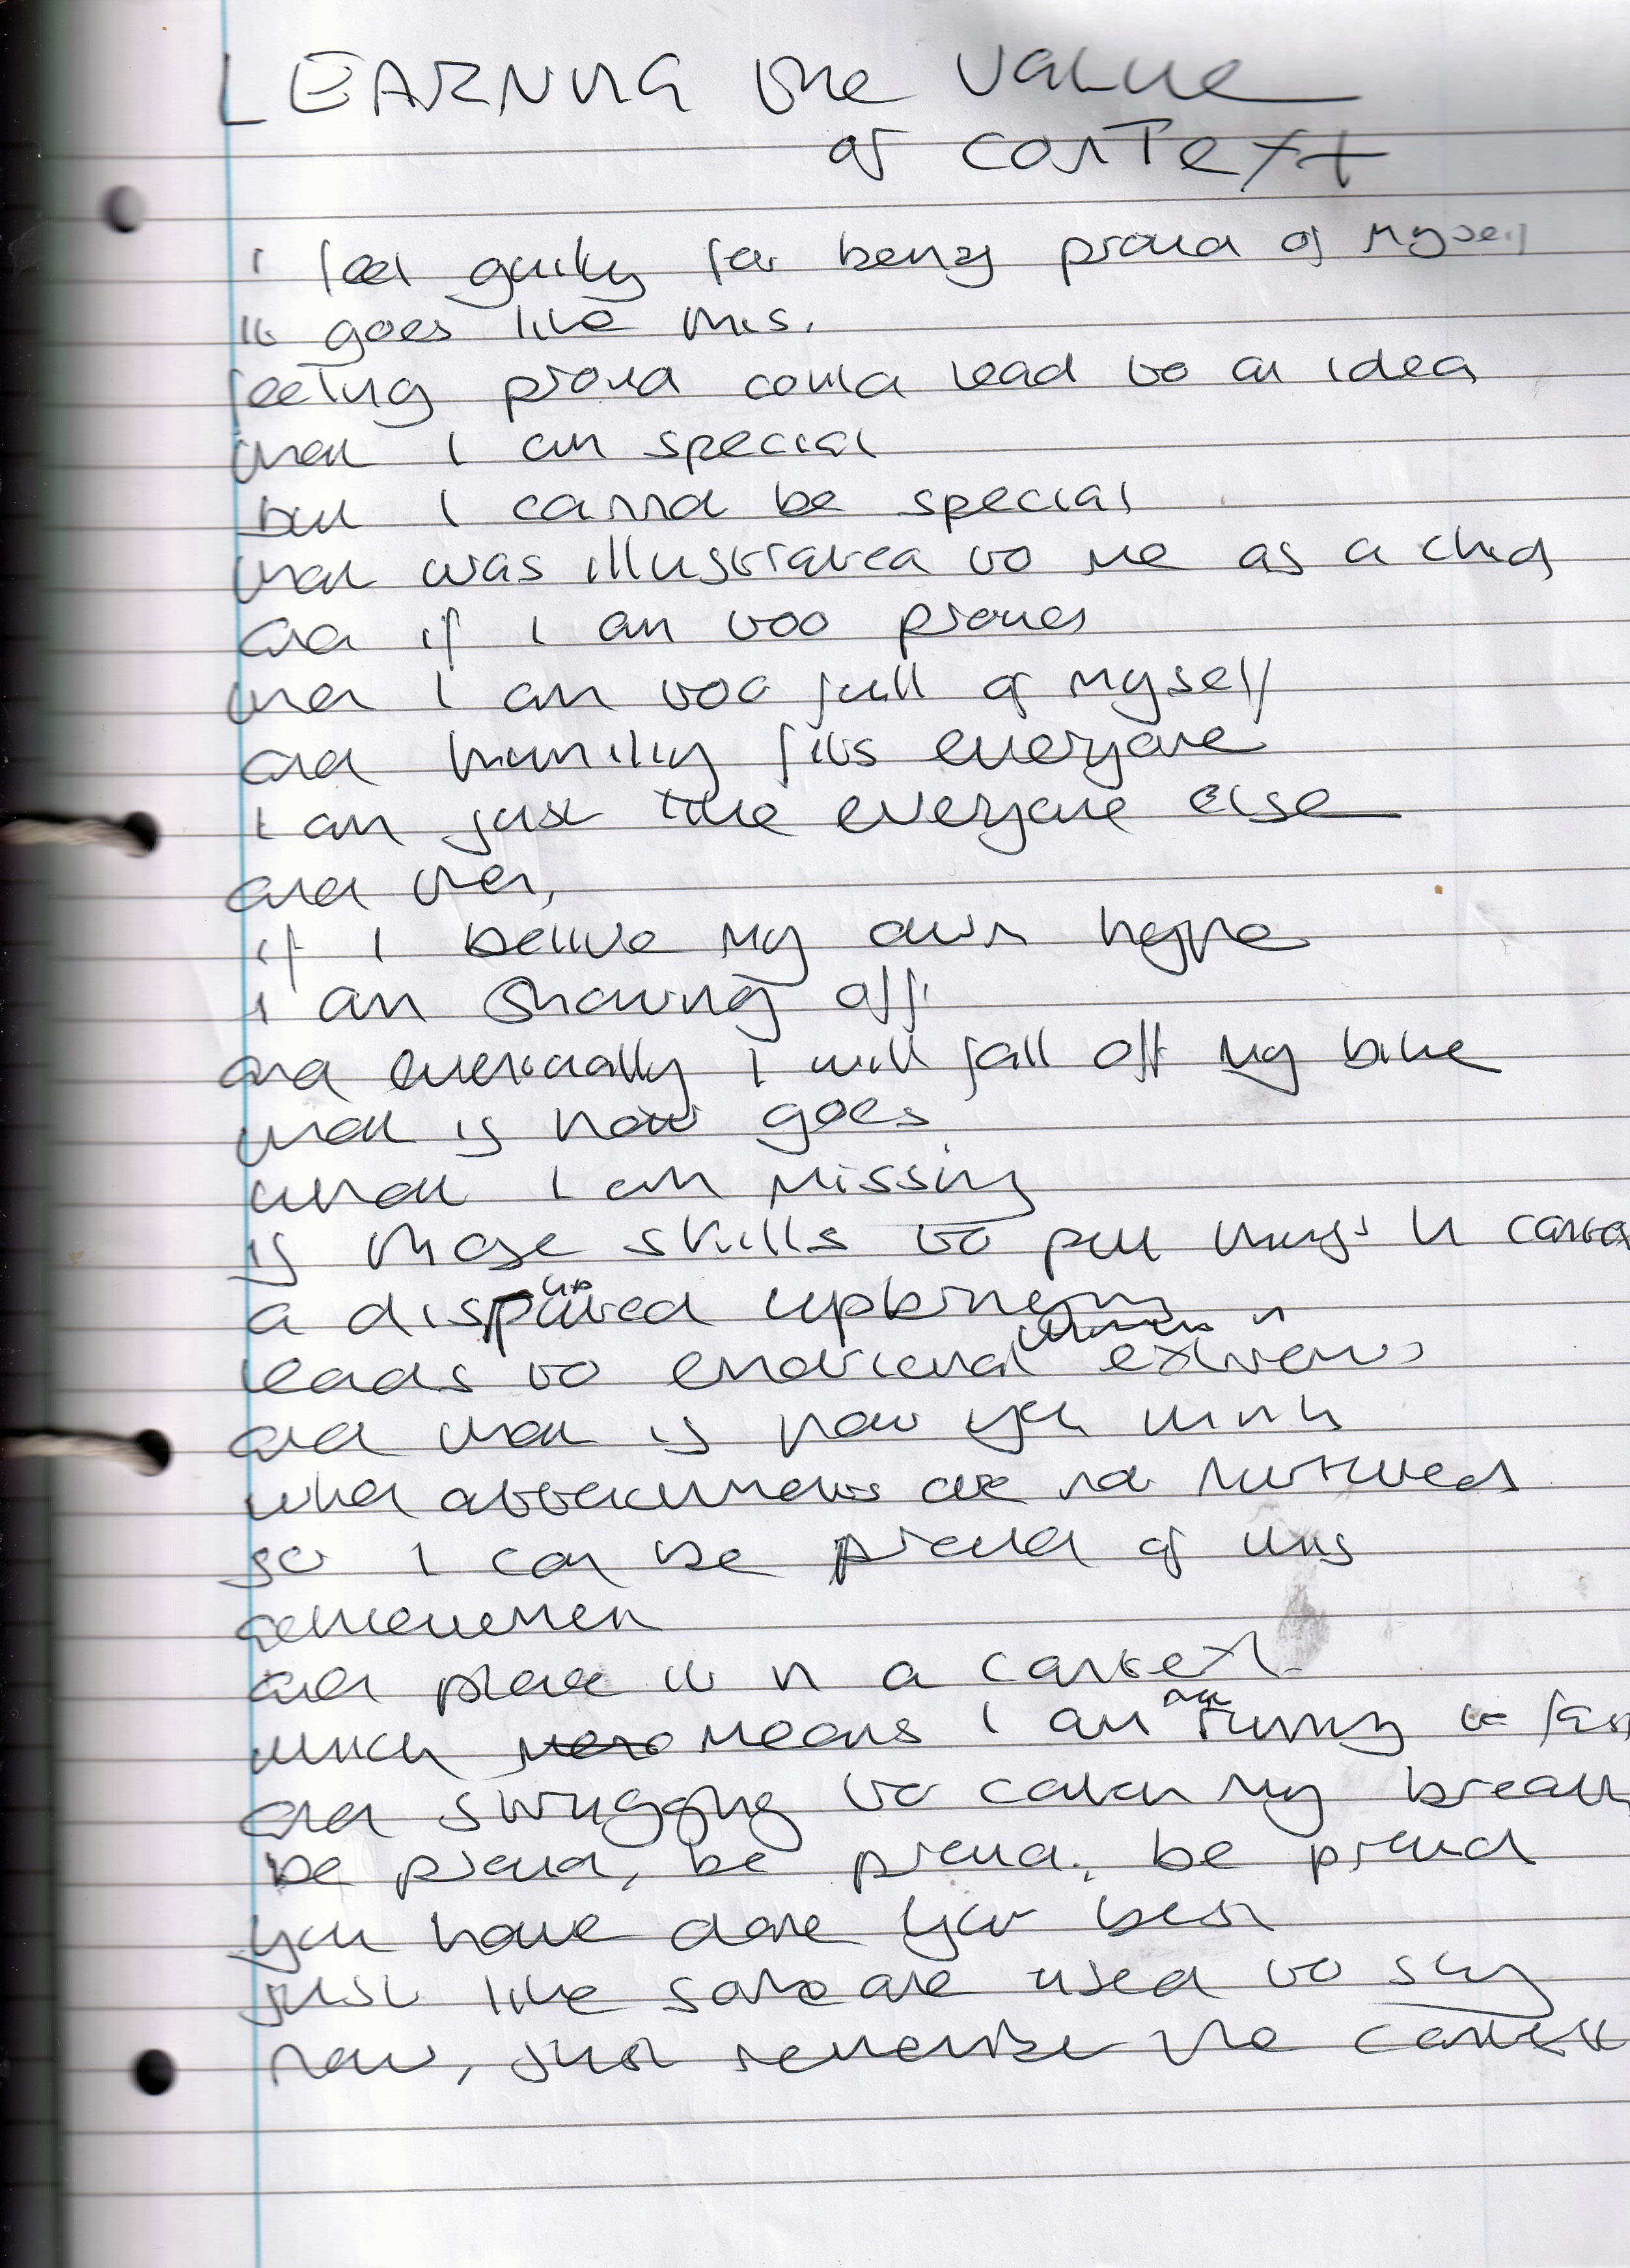 LEARNING the value
of context
I feel guilty for being proud of myself
It goes like this.
feeling proud could lead to an idea
that I am special
but I cannot be special
that was illustrated to me as a child
and if I am too proud
then I am too full of myself
and humility fits everyone
I am just like everyone else
and then,
if I believe my own hype
I am showing off
and eventually I will fall off my bike
that is how goes
what I am missing
is those skills to put things in
a upbringing
leads to emotional extremes
and that is how you think
when attachments are not nurtured
so I can be proud of this
achievement
and place it in a context
which means I am running to
and struggling to catch my breath
be proud, be proud, be proud
you have done your best
just like someone used to say
now, just remember the context